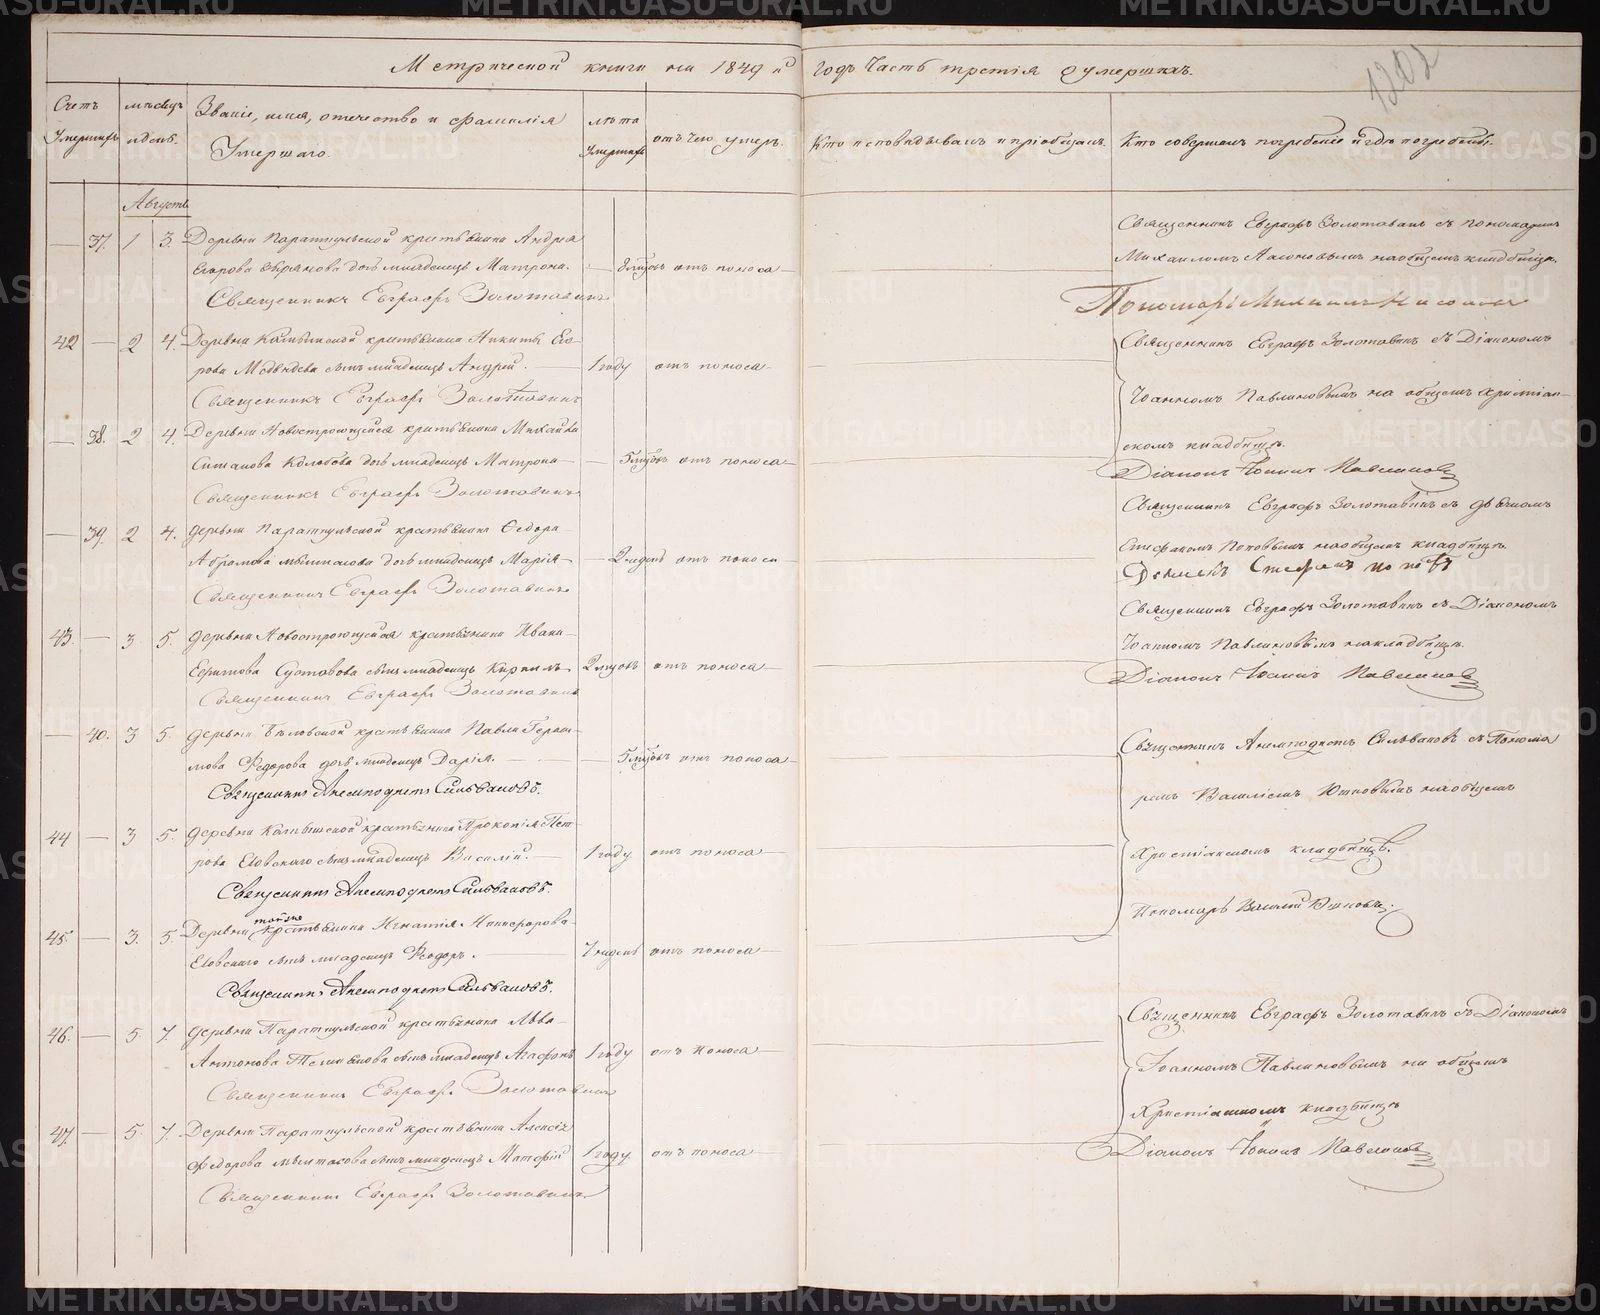 1202
Метрической книги на 1849й годъ Часть третія о умершихъ.
Счетъ Умершихъ
мѣсяцъ и день.
Званіе, имя, отечество и фамилія
Умершаго.
лѣта Умершихъ
отъ чего умеръ.
Кто исповѣдывалъ и пріобщалъ.
Кто совершалъ погребеніе и гдѣ погребены.
Августъ
37. 1 3. Деревни Параткульской крестьянина Андрея
Егорова дочь младенецъ Матрона. отъ поноса
Священникъ Евграфъ Золотавинъ
Священникъ Евграфъ Золотавинъ съ пономаремъ
Михаиломъ на общемъ кладбищѣ.
Пономарь Михаилъ
42 2 4. Деревни крестьянина Никиты Его-
рова Медвѣдева сынъ младенецъ Андрей. 1 году отъ поноса
Священникъ Евграфъ Золотавинъ
Священникъ Евграфъ Золотавинъ съ Діакономъ
Іоанномъ Павлиновымъ на общемъ христіан-
скомъ кладбищѣ.
Діаконъ Іоаннъ Павлиновъ
38. 2 4. Деревни Новостроющейся крестьянина Михаила
дочь младенецъ Матрона отъ поноса
Священникъ Евграфъ Золотавинъ
39. 2 4. Деревни Параткульской крестьянина Ѳедора
дочь младенецъ Марія 2 недель отъ поноса
Священникъ Евграфъ Золотавинъ
Священникъ Евграфъ Золотавинъ съ дьячкомъ
Стефаномъ Поповымъ на общемъ кладбищѣ.
Дьячекъ Стефанъ Поповъ
43. 3. 5. Деревни Новостроющейся крестьянина Ивана
сынъ младенецъ Кириллъ отъ поноса
Священникъ Евграфъ Золотавинъ
Священникъ Евграфъ Золотавинъ съ Діакономъ
Іоанномъ Павлиновымъ на кладбищѣ.
Діаконъ Іоаннъ Павлиновъ
40. 3 5. Деревни крестьянина Павла
Федорова дочь младенецъ Дарія. отъ поноса
Священникъ Анемподистъ Сильвановъ.
Священникъ Анемподистъ Сильвановъ съ Понома
ремъ Василіемъ на общемъ
Христіанскомъ кладбищѣ.
Пономарь Василій
44 3 5. Деревни крестьянина Прокопія Пет-
рова сынъ младенецъ Василій. 1 году отъ поноса
Священникъ Анемподистъ Сильвановъ.
45. 3. 5. Деревни тойже крестьянина Игнатія Никифорова
сынъ младенецъ Феодоръ. 7 недель отъ поноса
Священникъ Анемподистъ Сильвановъ.
46. 5. 7. Деревни Параткульской крестьянина Льва
Антонова сынъ младенецъ Агафонъ 1 году отъ поноса
Священникъ Евграфъ Золотавинъ
Священникъ Евграфъ Золотавинъ съ Діакономъ
Іоанномъ Павлиновымъ на общемъ
Христіанскомъ кладбищѣ
Діаконъ Іоаннъ Павлиновъ
47. 5. 7. Деревни Параткульской крестьянина Алексея
Федорова сынъ младенецъ Матфій 1 году отъ поноса
Священникъ Евграфъ Золотавинъ
METRIKI.GASO-URAL.RU